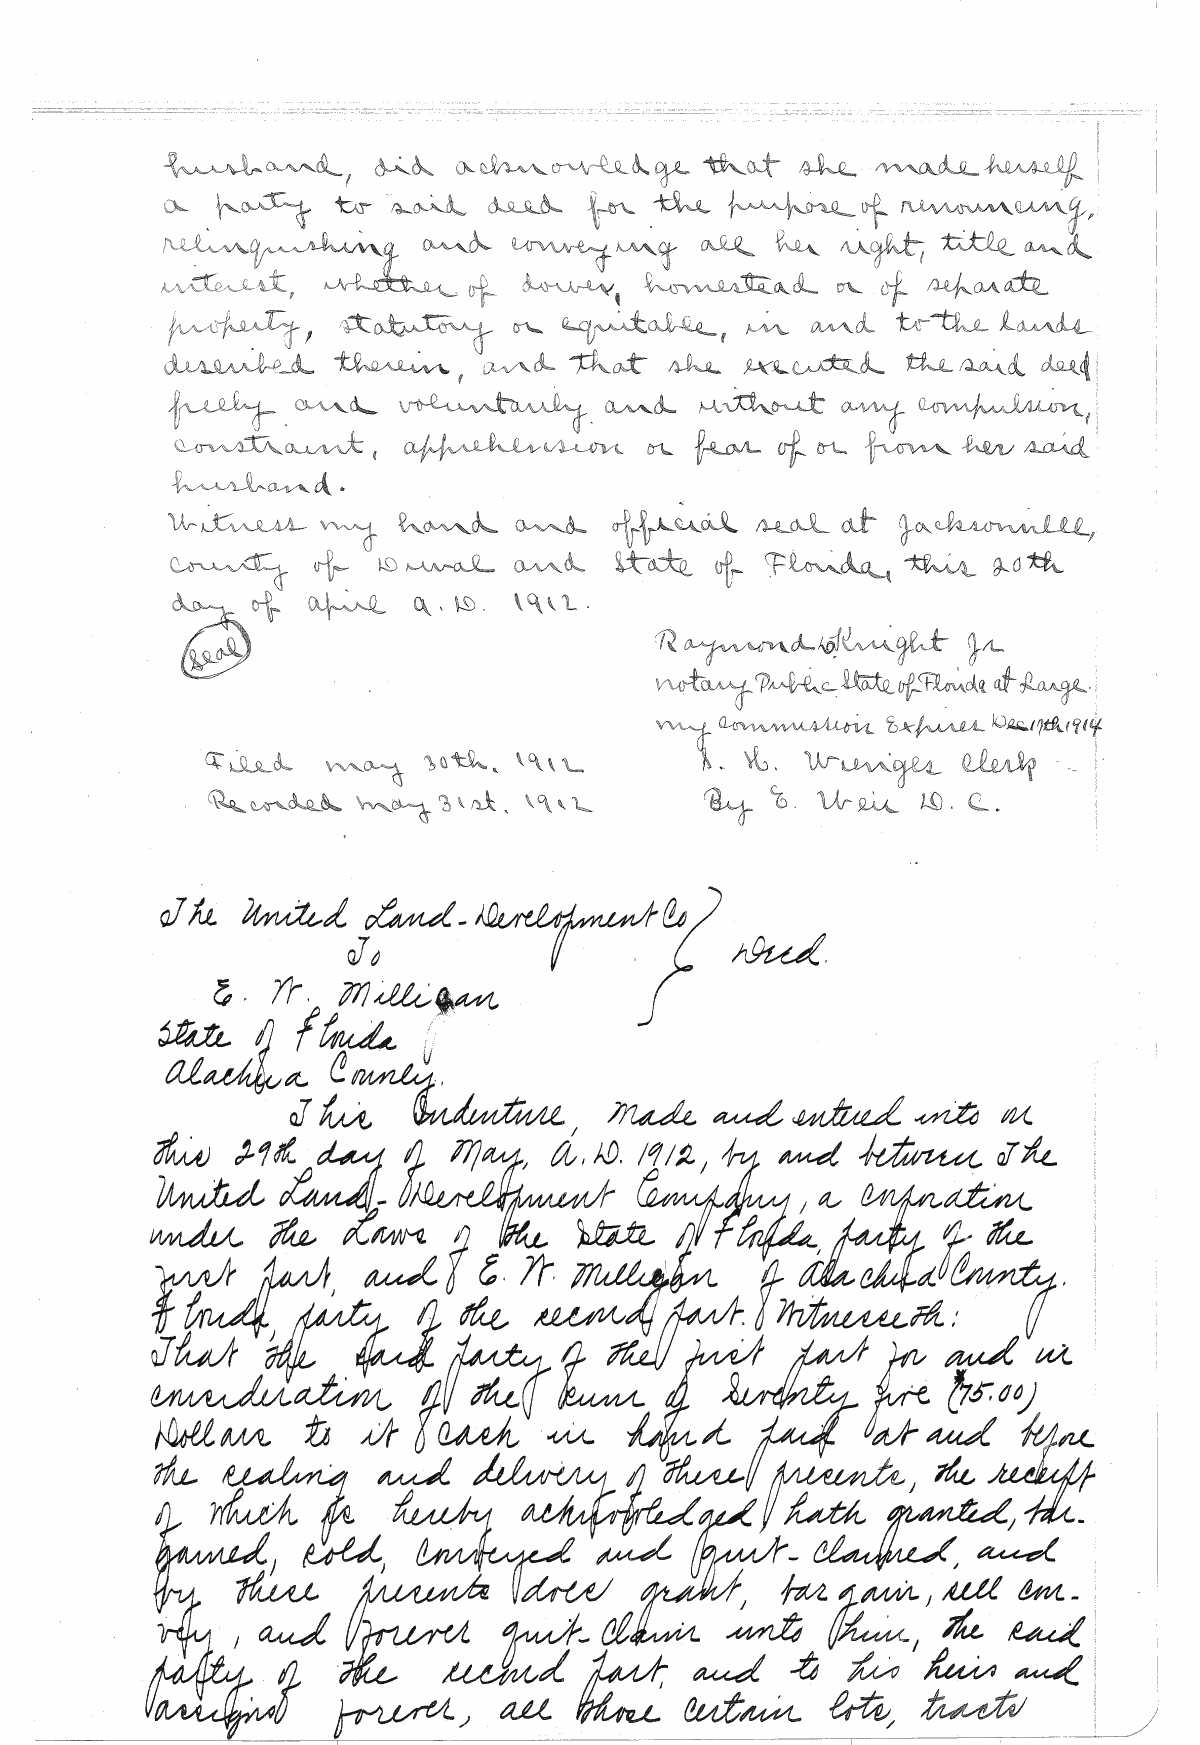 husband, did acknowledge that she made herself
a party to said deed for the purpose of renouncing,
relinquishing and conveying all her right, title and
interest, whether of dower, homestead or of separate
property, statutory or equitable, in and to the lands
described therein, and that she executed the said deed
freely and voluntarily and without any compulsion,
constraint, apprehension or fear of or from her said
husband.
Witness my hand and official seal at Jacksonville,
County of Duval and State of Florida, this 20th
day of April A.D. 1912.
Seal
Raymond D Knight Jr
Notary Public State of Florida at Large.
My Commission Expires Dec 17th 1914
Filed May 30th, 1912
S. H. Wienges Clerk
Recorded May 31st, 1912
By E. Weir D. C.
The United Land-Development Co
To
Deed.
E. W. Milligan
State of Florida
Alachua County.
This Indenture, Made and entered into on
this 29th day of May, A.D. 1912, by and between The
United Land-Development Company, a corporation
under the Laws of the State of Florida, party of the
first part, and E. W. Milligan of Alachua County.
Florida, party of the second part. Witnesseth:
That the said party of the first part for and in
consideration of the sum of Seventy five ($75.00)
Dollars to it cash in hand paid at and before
the sealing and delivery of these presents, the receipt
of which is hereby acknowledged hath granted, bar-
gained, sold, conveyed and quit-claimed, and
by these presents does grant, bargain, sell con-
vey, and forever quit-claim unto him, the said
party of the second part, and to his heirs and
assigns forever, all those certain lots, tracts